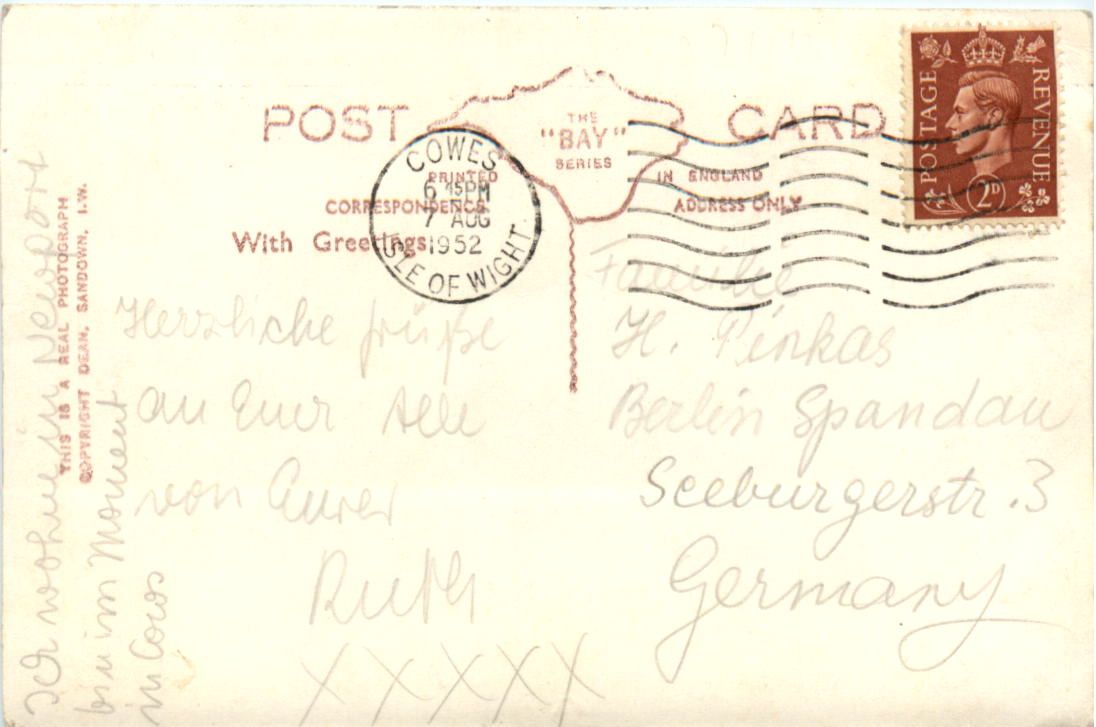 POST CARD
THE
"BAY"
SERIES
PRINTED IN ENGLAND
CORRESPONDENCE ADDRESS ONLY
With Greetings
COWES
6 45PM
7 AUG
1952
ISLE OF WIGHT
POSTAGE REVENUE
2D
THIS IS A REAL PHOTOGRAPH
COPYRIGHT DEAN, SANDOWN, I.W.
Herzliche Grüße
an Euer Alle
von Eurer
Ruth
XXXXX
wohne in Newport
bin im Moment
in Cows
Familie
H. Pinkas
Berlin Spandau
Seeburgerstr. 3
Germany